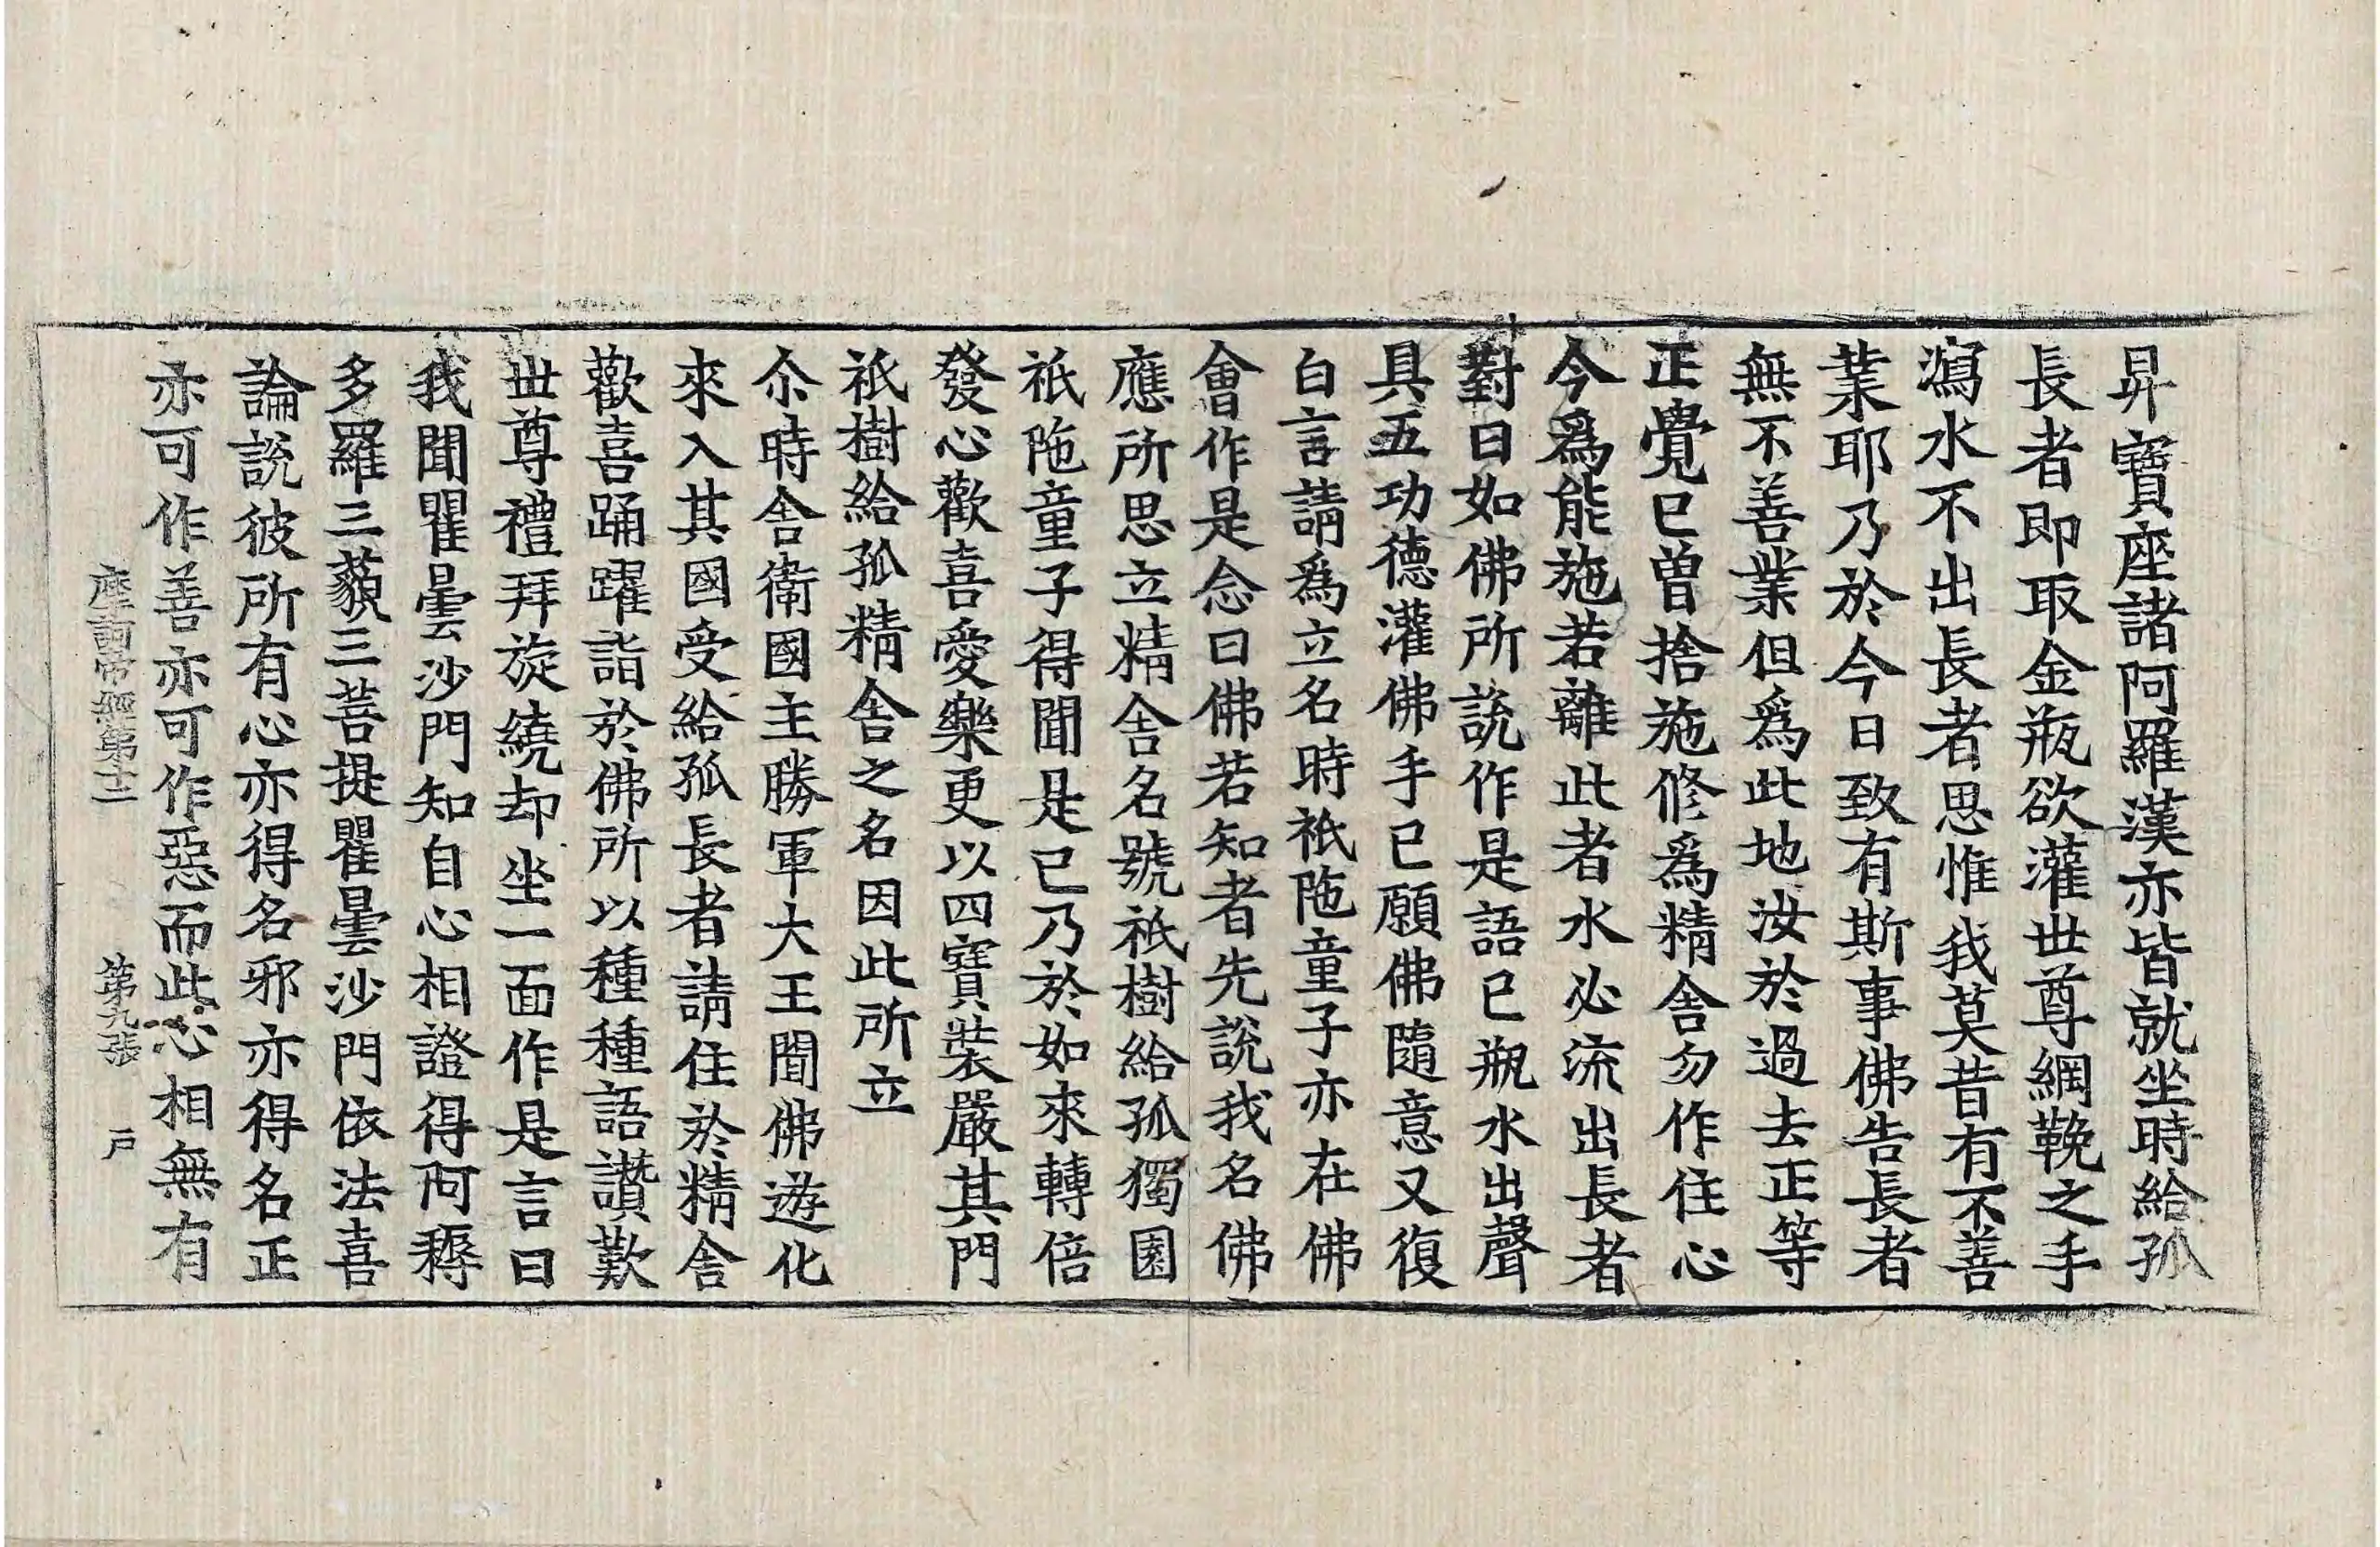 昇寶座諸阿羅漢亦皆就坐時給孤
長者即取金瓶欲灌世尊網鞔之手
瀉水不出長者思惟我莫昔有不善
業耶乃於今日致有斯事佛告長者
無不善業但爲此地汝於過去正等
正覺已曾捨施修爲精舍勿作住心
今爲能施若離此者水必流出長者
對曰如佛所說作是語已瓶水出聲
具五功德灌佛手已願佛隨意又復
白言請爲立名時祇陁童子亦在佛
會作是念曰佛若知者先說我名佛
應所思立精舍名號祇樹給孤獨園
祇陁童子得聞是已乃於如來轉倍
發心歡喜愛樂更以四寶裝嚴其門
祇樹給孤精舍之名因此所立
尒時舍衛國主勝軍大王聞佛遊化
來入其國受給孤長者請住於精舍
歡喜踊躍詣於佛所以種種語讚歎
世尊禮拜旋繞却坐一面作是言曰
我聞瞿曇沙門知自心相證得阿耨
多羅三藐三菩提瞿曇沙門依法喜
論說彼所有心亦得名邪亦得名正
亦可作善亦可作惡而此心相無有
經第十二 第九張 戶